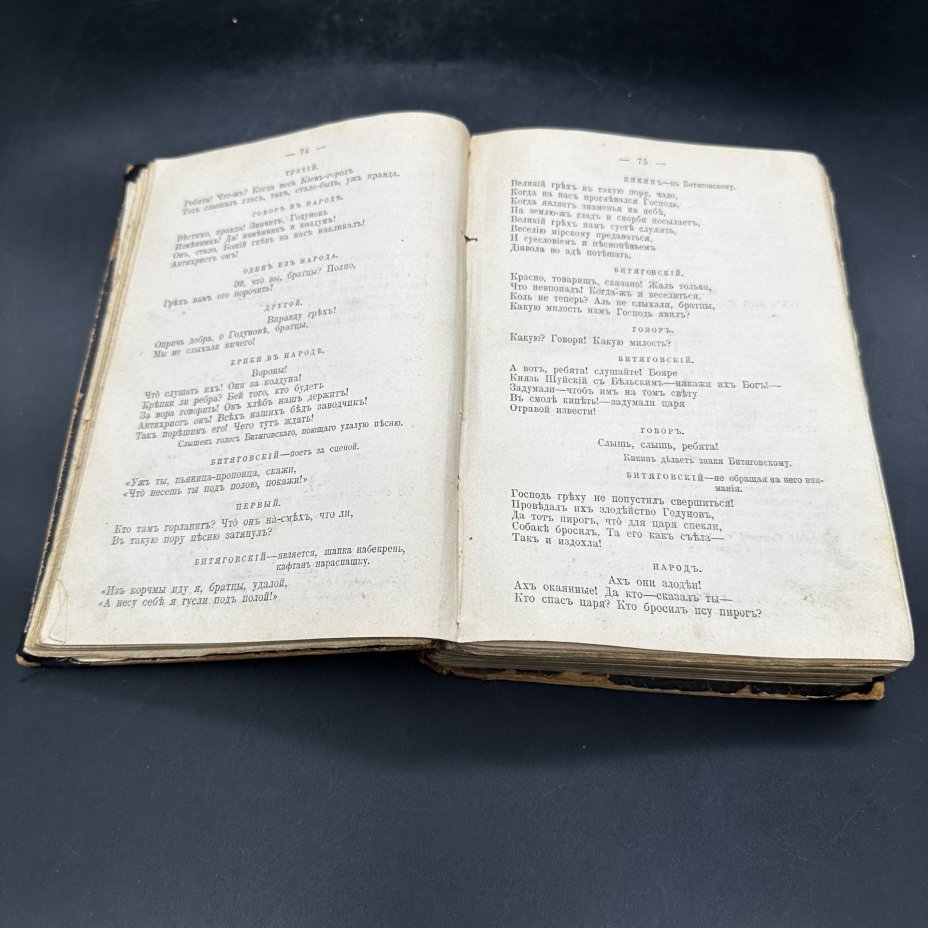 — 74 —
ТРЕТІЙ.
Ребята! Что-жъ? Когда весь Кіевъ-городъ
Тотъ слышалъ гласъ, такъ, стало-быть, ужъ правда.
ГОВОРЪ ВЪ НАРОДѢ.
Вѣстимо, правда! Значитъ, Годуновъ
Измѣнникъ! Да! измѣнникъ и колдунъ!
Онъ, стало, Божій гнѣвъ на насъ накликалъ!
Антихристъ онъ!
ОДИНЪ ИЗЪ НАРОДА.
Эй, что̀ вы, братцы? Полно,
Грѣхъ вамъ его порочить!
ДРУГОЙ.
Вправду грѣхъ!
Опричь добра, о Годуновѣ, братцы,
Мы не слыхали ничего!
КРИКИ ВЪ НАРОДѢ.
Вороны!
Что̀ слушать ихъ! Они за колдуна!
Крѣпки ли ребра? Бей того, кто будетъ
За вора говорить! Онъ хлѣбъ нашъ держитъ!
Антихристъ онъ! Всѣхъ нашихъ бѣдъ заводчикъ!
Такъ порѣшимъ его! Чего тутъ ждать!
Слышенъ голосъ Битяговскаго, поющаго удалую пѣсню.
БИТЯГОВСКІЙ—поетъ за сценой.
«Ужъ ты, пьяница-пропоица, скажи,
«Что̀ несешь ты подъ полою, покажи!»
ПЕРВЫЙ.
Кто тамъ горланитъ? Что̀ онъ на-смѣхъ, что ли,
Въ такую пору пѣсню затянулъ?
БИТЯГОВСКІЙ—является, шапка набекрень,
кафтанъ нараспашку.
«Изъ корчмы иду я, братцы, удалой,
«А несу себѣ я гусли подъ полой!»
— 75 —
КИКИНЪ—къ Битяговскому.
Великій грѣхъ въ такую пору, чадо,
Когда на насъ прогнѣвался Господь,
Когда являетъ знаменья на небѣ,
На землю-жъ гладъ и скорби посылаетъ,
Великій грѣхъ намъ суетѣ служить,
Веселію мірскому предаваться,
И суесловіемъ и пѣснопѣньемъ
Діавола во адѣ потѣшать.
БИТЯГОВСКІЙ.
Красно, товарищъ, сказано! Жаль только,
Что невпопадъ! Когда-жъ и веселиться,
Коль не теперь? Аль не слыхали, братцы,
Какую милость намъ Господь явилъ?
ГОВОРЪ.
Какую? Говори! Какую милость?
БИТЯГОВСКІЙ.
А вотъ, ребята! слушайте! Бояре
Князь Шуйскій съ Бѣльскимъ—накажи ихъ Богъ!—
Задумали—чтобъ имъ на томъ свѣту
Въ смолѣ кипѣть!—задумали царя
Отравой извести!
ГОВОРЪ.
Слышь, слышь, ребята!
Кикинъ дѣлаетъ знаки Битяговскому.
БИТЯГОВСКІЙ—не обращая на него вни-
манія.
Господь грѣху не попустилъ свершиться!
Провѣдалъ ихъ злодѣйство Годуновъ,
Да тотъ пирогъ, что̀ для царя спекли,
Собакѣ бросилъ, Та его какъ съѣла—
Такъ и издохла!
НАРОДЪ.
Ахъ они злодѣи!
Ахъ окаянные! Да кто—сказалъ ты—
Кто спасъ царя? Кто бросилъ псу пирогъ?